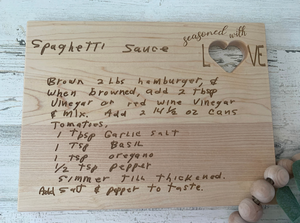 Spaghetti Sauce
seasoned with
LOVE
Brown 2 lbs hamburger, &
when browned, add 2 Tbsp
Vinegar or red wine Vinegar
& mix. Add 2 14½ oz cans
Tomatoes.
1 Tbsp Garlic Salt
1 Tsp Basil
1 Tsp oregano
½ Tsp pepper
Simmer Till Thickened.
Add salt & pepper to taste.